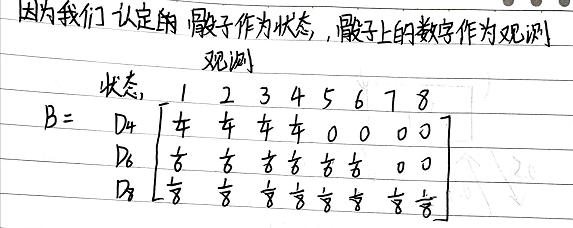 因为我们认定的骰子作为状态,,骰子上的数字作为观测
观测
状态, 1 2 3 4 5 6 7 8
B= D4 [ 1/4 1/4 1/4 1/4 0 0 0 0
D6 1/6 1/6 1/6 1/6 1/6 1/6 0 0
D8 1/8 1/8 1/8 1/8 1/8 1/8 1/8 1/8 ]